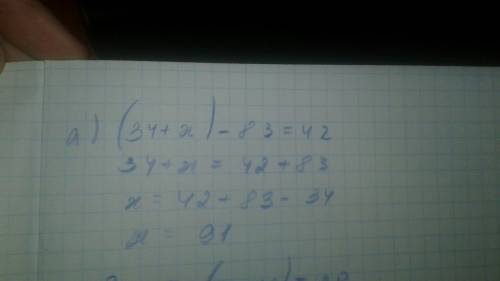 а) (34+x)-83=42
34+x = 42+83
x = 42+83-34
x = 91